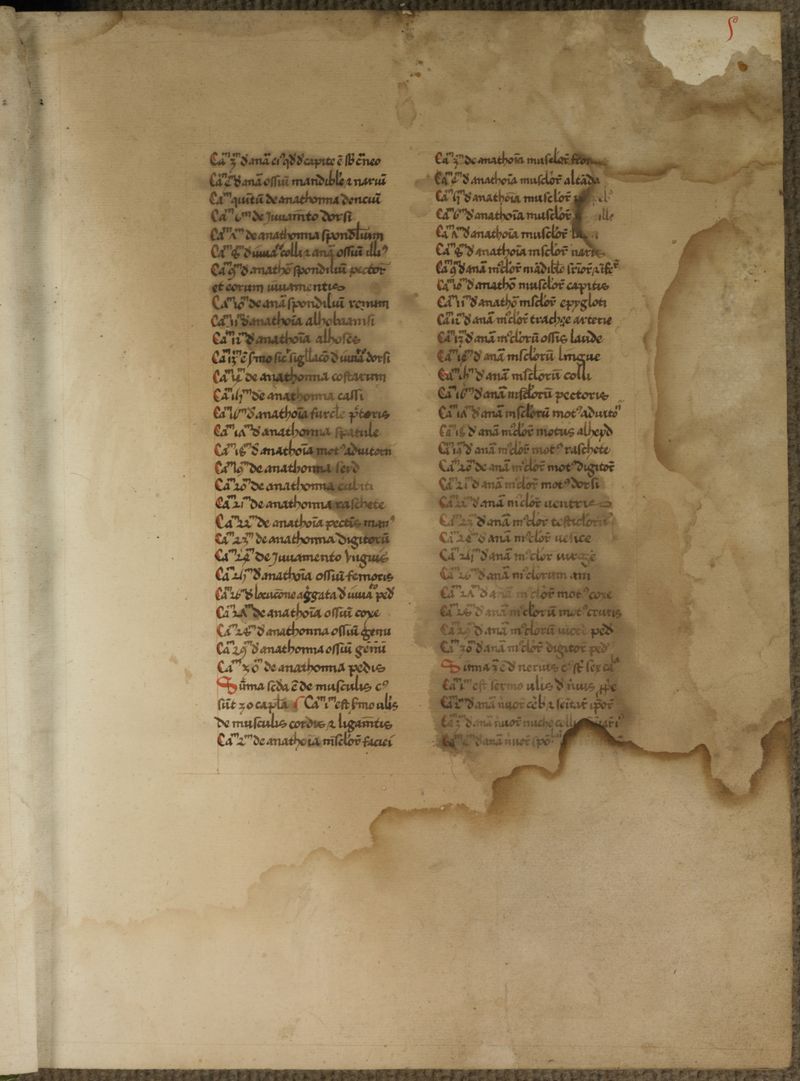 Caᵐ 3ᵐ d anā eiꝰ qd d capite ē sb cͣneo
Caᵐ 4ᵐ d anā ossiū mandible ⁊ nariū
Caᵐ quītū de anathomia dencīū
Caᵐ 6ᵐ de Juuamto dorsi
Caᵐ ᴧᵐ de anathomia spondilium
Caᵐ 8ᵐ d iuuaᵗᵒ colli ⁊ anā ossiū illiꝰ
Caᵐ 9ᵐ d anathoᵉ spondiliū pector
et eorum iuuamentis
Caᵐ 10ᵐ de anā spondiliū renum
Caᵐ 11ᵐ d anathoīa alhobaamsi
Caᵐ 12ᵐ d anathoīa alhoses
Caᵐ 13ᵐ ē sͬmo sicͭ sigllacō d iuuaᵗᵒ dorsi
Caᵐ 14ᵐ de anathomia costarum
Caᵐ 15ᵐ de anathomia cassi
Caᵐ 16ᵐ d anathoīa furcle pectoris
Caᵐ 1ᴧᵐ d anathomia spatule
Caᵐ 18ᵐ d anathoīa motꝰ adiutorii
Caᵐ 19ᵐ de anathomia
Caᵐ 20ᵐ de anathomia cubiti
Caᵐ 21ᵐ de anathomia raschete
Caᵐ 22ᵐ de anathoīa pectīs manꝰ
Caᵐ 23ᵐ de anathomia digitorū
Caᵐ 24ᵐ de Juuamento vnguis
Caᵐ 25ᵐ d anathoīa ossiū femoris
Caᵐ 26ᵐ d locucōne aggᵃta d iuuaᵗᵒ ped
Caᵐ 2ᴧᵐ de anathoīa ossiū coxe
Caᵐ 28ᵐ d anathomia ossiū genu
Caᵐ 29ᵐ d anathomia ossiū
Caᵐ 30ᵐ de anathomia pedis
Sūma scda ē de musculis cꝰ
sūt 30 capla Caᵐ 1ᵐ est sͬmo ulis
de musculis cordis ⁊ ligamtis
Caᵐ 2ᵐ de anathoīa mͫsclor̄ faciei
Caᵐ 3ᵐ de anathoīa musclor̄
Caᵐ 4ᵐ d anathoīa musclor̄
Caᵐ 5ᵐ d anathoīa musclor̄
Caᵐ 6ᵐ d anathoīa musclor̄
Caᵐ ᴧᵐ d anathoīa musclor̄
Caᵐ 8ᵐ d anathoīa mͫsclor̄ naris
Caᵐ 9ᵐ d anā mͫclor̄ mādible
Caᵐ 10ᵐ de anathoᵉ musclor̄ capitis
Caᵐ 11ᵐ d anathoᵉ mͫsclor̄ epygloti
Caᵐ 12ᵐ d anā mͫclor̄ trachye arterie
Caᵐ 13ᵐ d anā mͫclorū ossis laude
Caᵐ 14ᵐ d anā mͫsclorū lingue
Caᵐ 15ᵐ d anā mͫsclorū colli
Caᵐ 16ᵐ d anā mͫsclorū pectoris
Caᵐ 1ᴧᵐ d anā mͫsclorū motꝰ adiutoͬ
Caᵐ 18ᵐ d anā mͫclor̄ motus
Caᵐ 19ᵐ d anā mͫclor̄ motꝰ raschete
Caᵐ 20ᵐ de anā mͫclor̄ motꝰ digitor̄
Caᵐ 21ᵐ d anā mͫclor̄ motꝰ dorsi
Caᵐ 22ᵐ d anā mͫclor̄ uentris
Caᵐ 23ᵐ d anā mͫclor̄ testiclor̄
Caᵐ 24ᵐ d anā mͫclor̄ uesice
Caᵐ 25ᵐ d anā mͫclor̄ uirge
Caᵐ 26ᵐ d anā mͫclorum ani
Caᵐ 2ᴧᵐ d anā mͫclor̄ motꝰ coxe
Caᵐ 28ᵐ d anā mͫclorū motꝰ cruris
Caᵐ 29ᵐ d anā mͫclorū iuncͭe ped
Caᵐ 30ᵐ d anā mͫclor̄ digitor̄ ped
Suma 3ᵃ ē d neruis cꝰ st sex clᵃ
Caᵐ 1ᵐ est sermo ulis d nͬuis
Caᵐ 2ᵐ d anā nͬuor̄ cͬeb ⁊
Caᵐ 3ᵐ d anā nͬuor̄ nuche
Caᵐ 4ᵐ d anā nͬuor̄